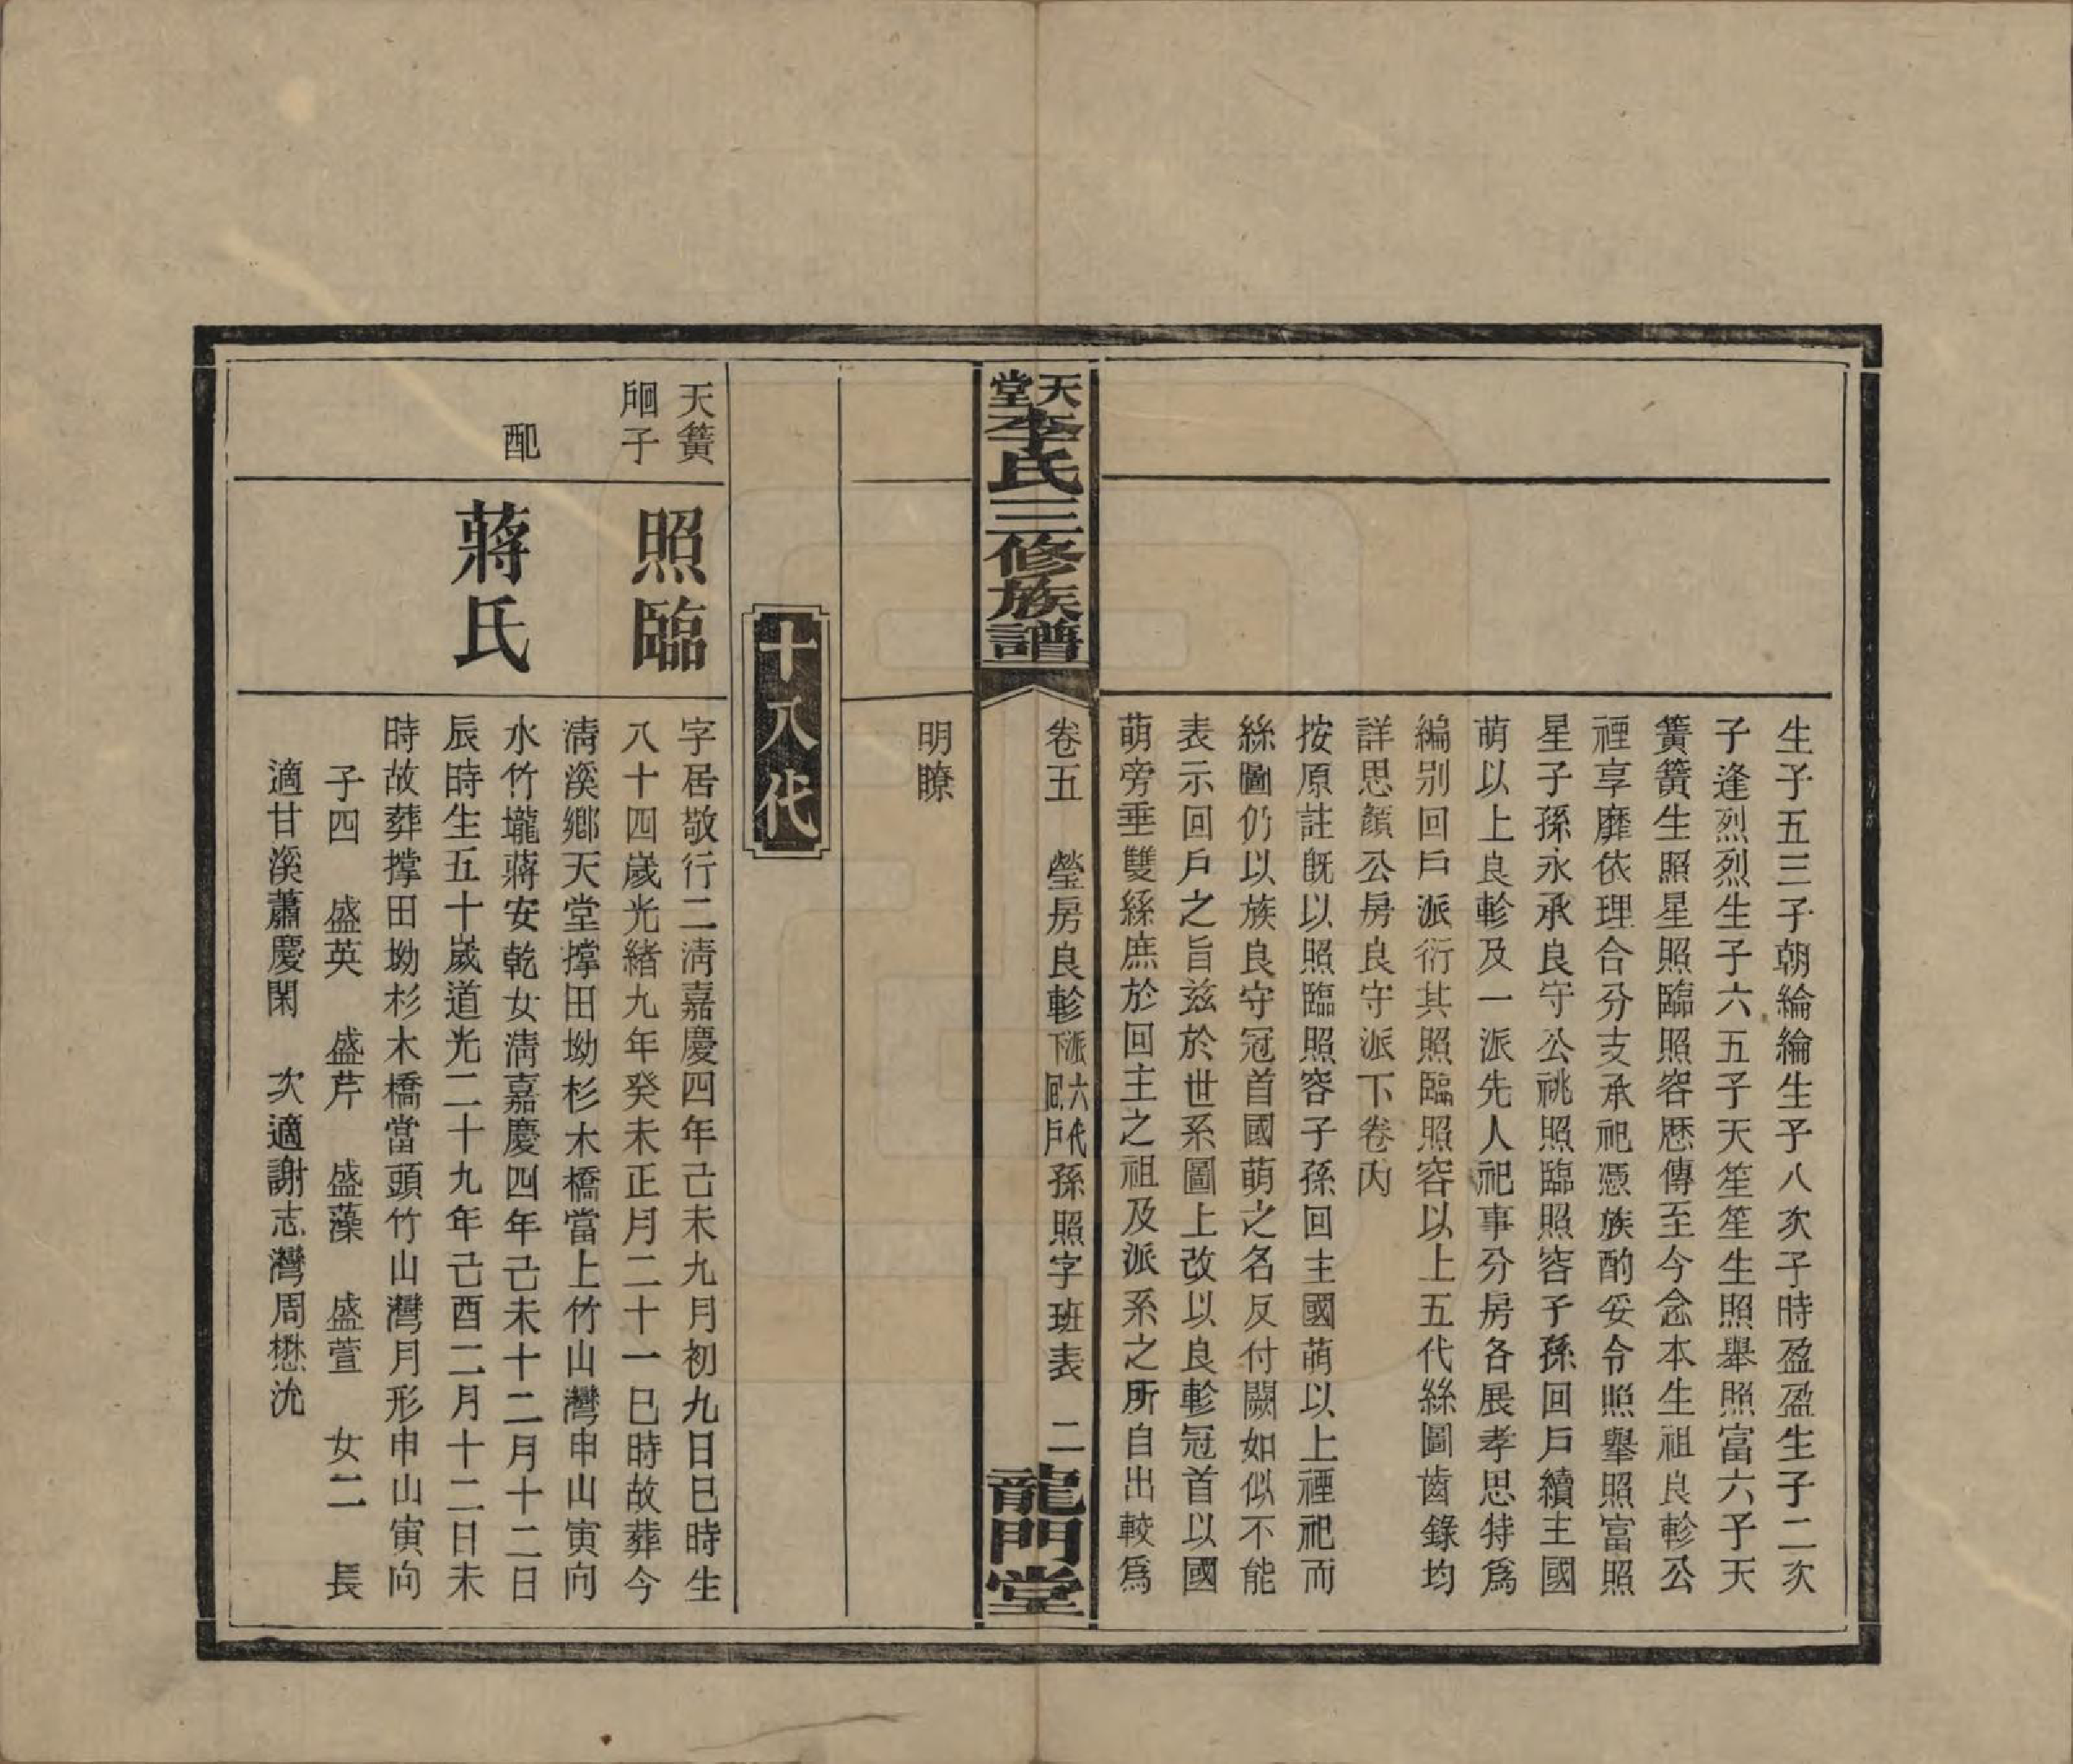 生子五三子朝綸綸生子八次子時盈盈生子二次
子逢烈烈生子六五子天笙笙生照舉照富六子天
簧簧生照星照臨照容歷傳至今念本生祖良軫公
禋享靡依理合分支承祀憑族酌妥令照舉照富照
星子孫永承良守公祧照臨照容子孫回戶續主國
萌以上良軫及一派先人祀事分房各展孝思特爲
編別回戶派衍其照臨照容以上五代絲圖齒錄均
詳思顏公房良守派下卷內
按原註既以照臨照容子孫回主國萌以上禋祀而
絲圖仍以族良守冠首國萌之名反付闕如似不能
表示回戶之旨茲於世系圖上改以良軫冠首以國
萌旁垂雙絲庶於回主之祖及派系之所自出較爲
天堂李氏三修族譜
卷五　瑩房良軫派六代下囘戶孫照字班表　二
龍門堂
明瞭
十八代
天簧
囘子
照臨
字居敬行二淸嘉慶四年己未九月初九日巳時生
八十四歲光緒九年癸未正月二十一巳時故葬今
淸溪鄉天堂撐田坳杉木橋當上竹山灣申山寅向
配
蔣氏
水竹壠蔣安乾女淸嘉慶四年己未十二月十二日
辰時生五十歲道光二十九年己酉二月十二日未
時故葬撐田坳杉木橋當頭竹山灣月形申山寅向
子四　盛英　盛芹　盛藻　盛萱　女二　長
適甘溪蕭慶閑　次適謝志灣周懋沇